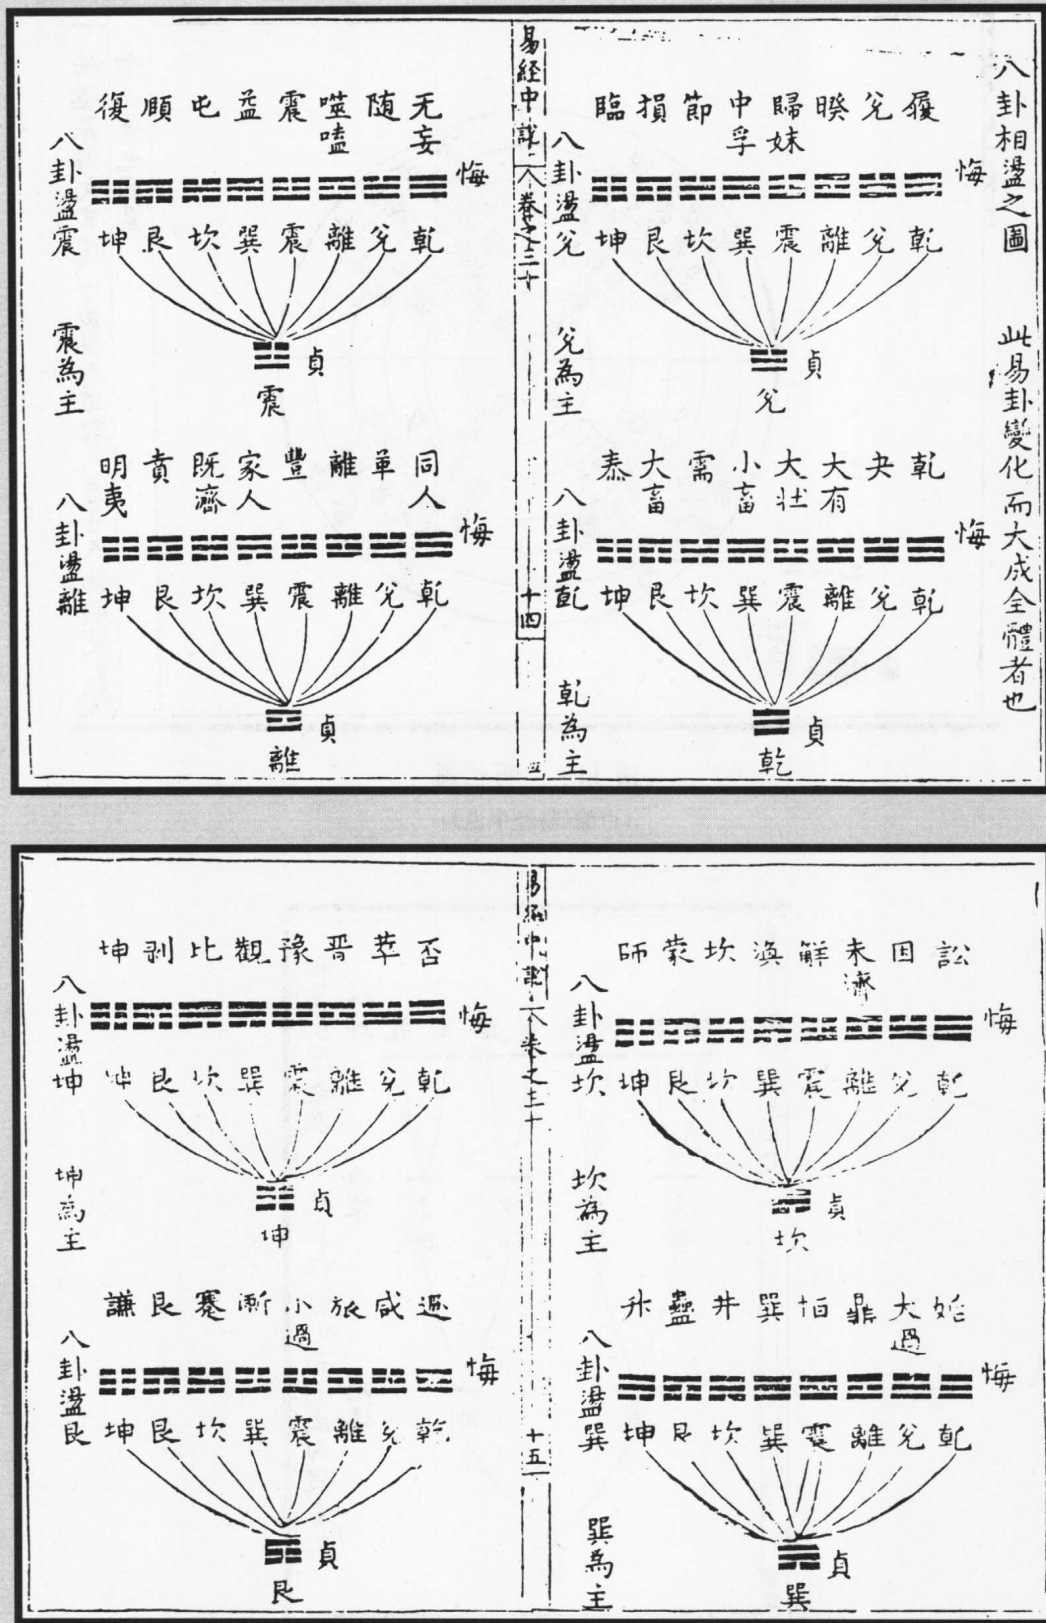 八卦相盪之圖 此易卦變化而大成全體者也
履 兌 睽 歸妹 中孚 節 損 臨
悔
乾 兌 離 震 巽 坎 艮 坤
貞
兌
八卦盪兌 兌為主
乾 夬 大有 大壯 小畜 需 大畜 泰
悔
乾 兌 離 震 巽 坎 艮 坤
貞
乾
八卦盪乾 乾為主
易経中說 卷之三十 十四
无妄 随 噬嗑 震 益 屯 頤 復
悔
乾 兌 離 震 巽 坎 艮 坤
貞
震
八卦盪震 震為主
同人 革 離 豐 家人 既濟 賁 明夷
悔
乾 兌 離 震 巽 坎 艮 坤
貞
離
八卦盪離
訟 困 未濟 解 渙 坎 蒙 師
悔
乾 兌 離 震 巽 坎 艮 坤
貞
坎
八卦盪坎 坎為主
姤 大過 鼎 恒 巽 井 蠱 升
悔
乾 兌 離 震 巽 坎 艮 坤
貞
巽
八卦盪巽 巽為主
易經中說 卷之三十 十五
否 萃 晋 豫 觀 比 剥 坤
悔
乾 兌 離 震 巽 坎 艮 坤
貞
坤
八卦盪坤 坤為主
咸 旅 小過 漸 蹇 艮 謙
悔
乾 兌 離 震 巽 坎 艮 坤
貞
艮
八卦盪艮